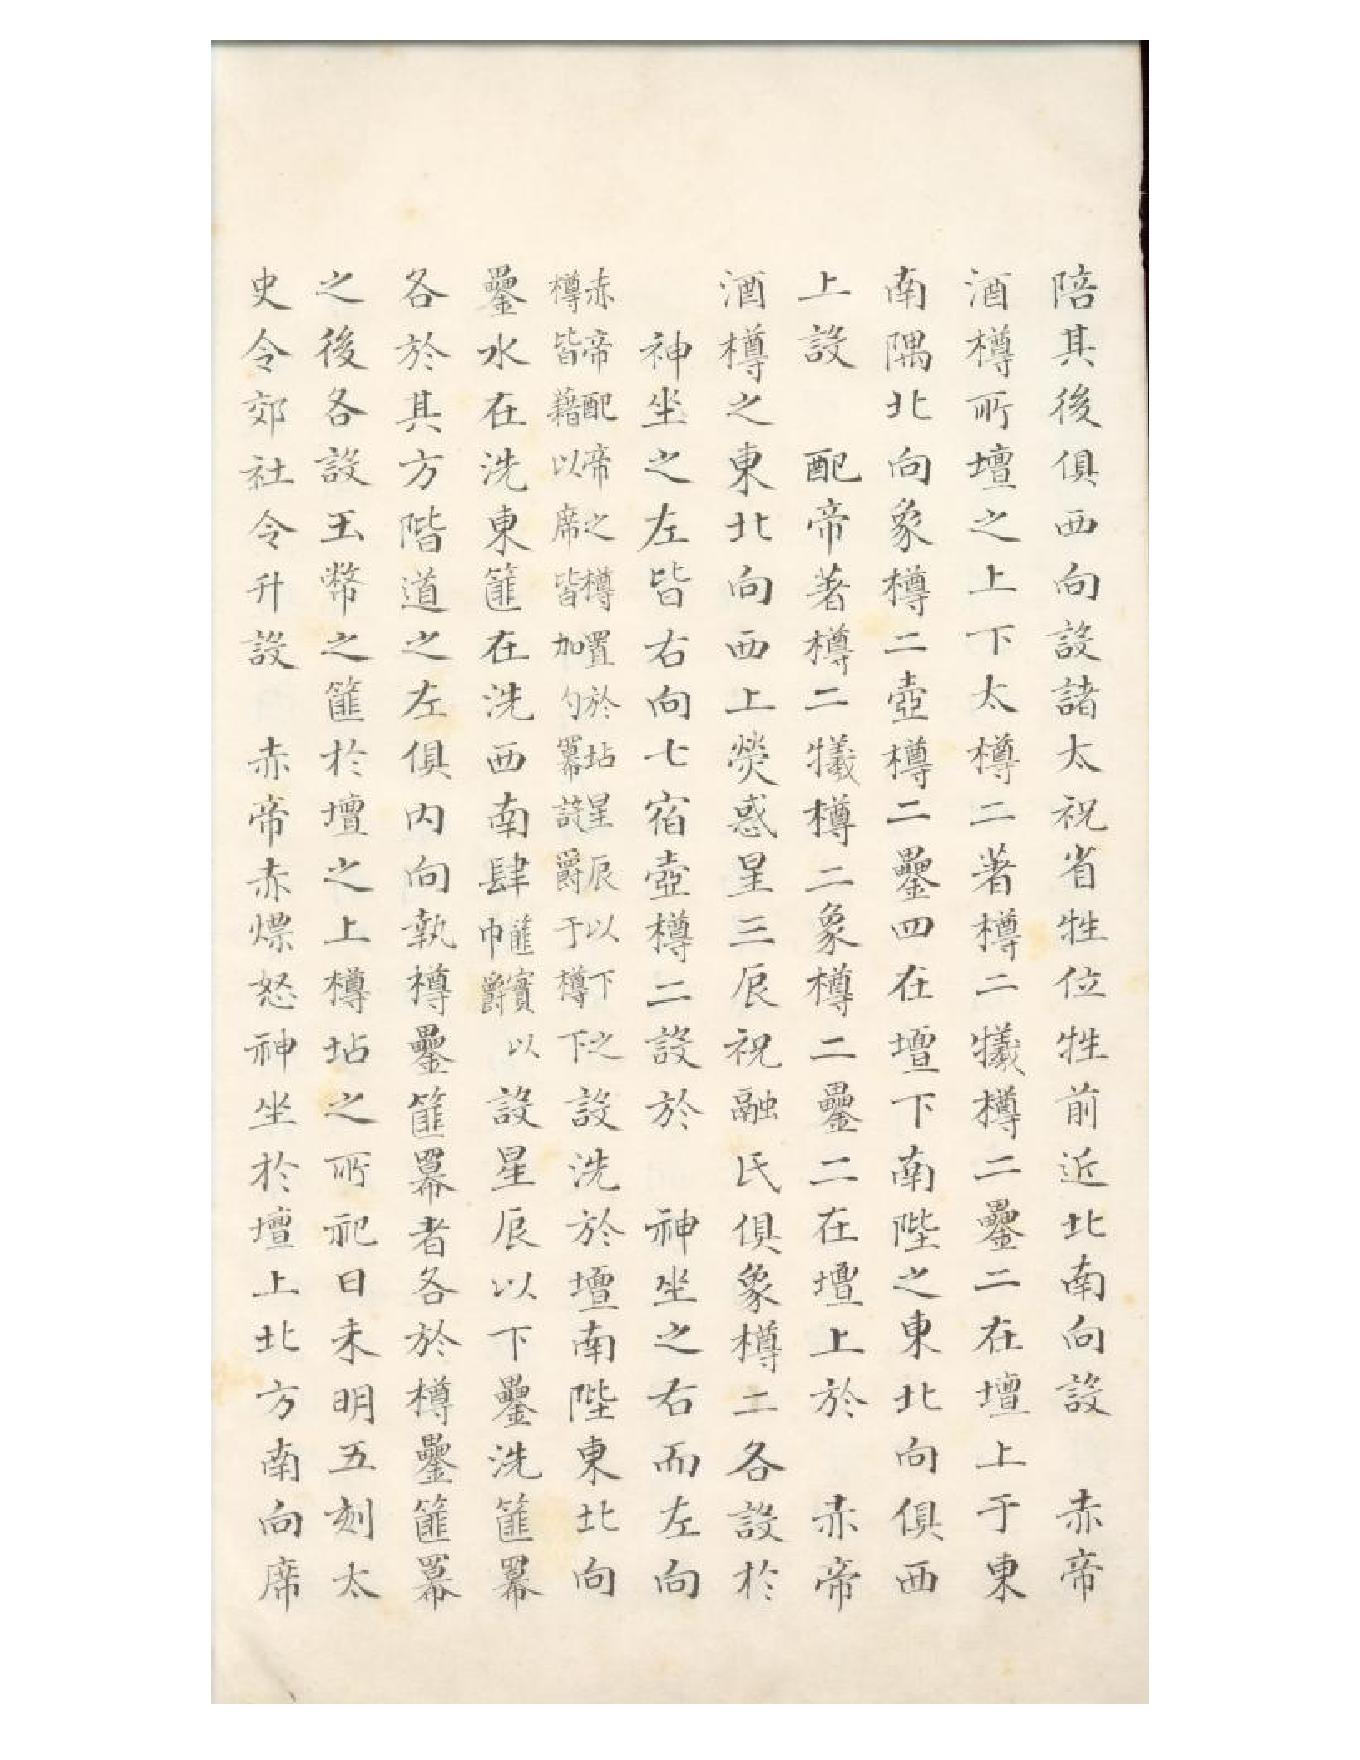 陪其後俱西向設諸太祝省牲位牲前近北南向設　赤帝
酒樽所壇之上下太樽二著樽二犧樽二罍二在壇上于東
南隅北向象樽二壺樽二罍四在壇下南陛之東北向俱西
上設　配帝著樽二犧樽二象樽二罍二在壇上於　赤帝
酒樽之東北向西上熒惑星三辰祝融氏俱象樽二各設於
　神坐之左皆右向七宿壺樽二設於　神坐之右而左向
赤帝配帝之樽置於坫星辰以下之
樽皆藉以席皆加勺冪設爵于樽下
設洗於壇南陛東北向
罍水在洗東篚在洗西南肆
篚實以
巾爵
設星辰以下罍洗篚冪
各於其方階道之左俱內向執樽罍篚冪者各於樽罍篚冪
之後各設玉幣之篚於壇之上樽坫之所祀日未明五刻太
史令郊社令升設　赤帝赤熛怒神坐於壇上北方南向席